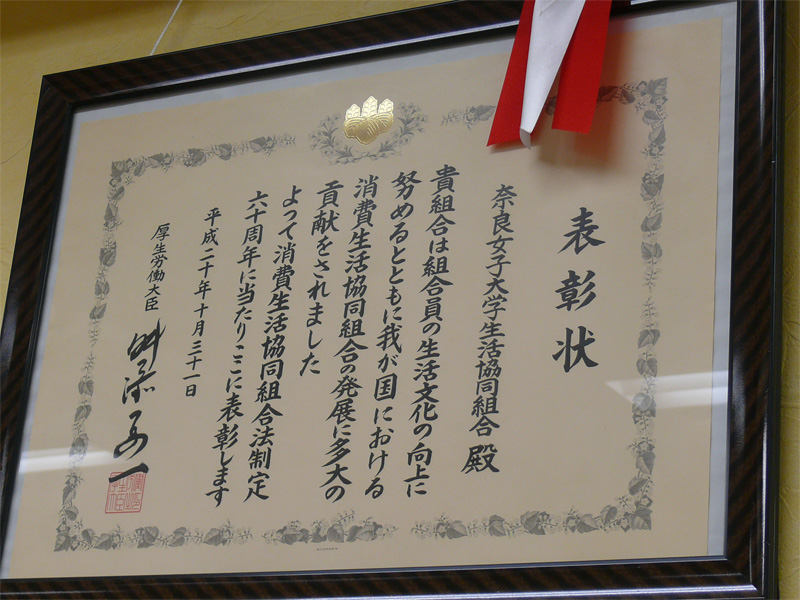 表彰状
奈良女子大学生活協同組合 殿
貴組合は組合員の生活文化の向上に
努めるとともに我が国における
消費生活協同組合の発展に多大の
貢献をされました
よって消費生活協同組合法制定
六十周年に当たりここに表彰します
平成二十年十月三十一日
厚生労働大臣 舛添要一